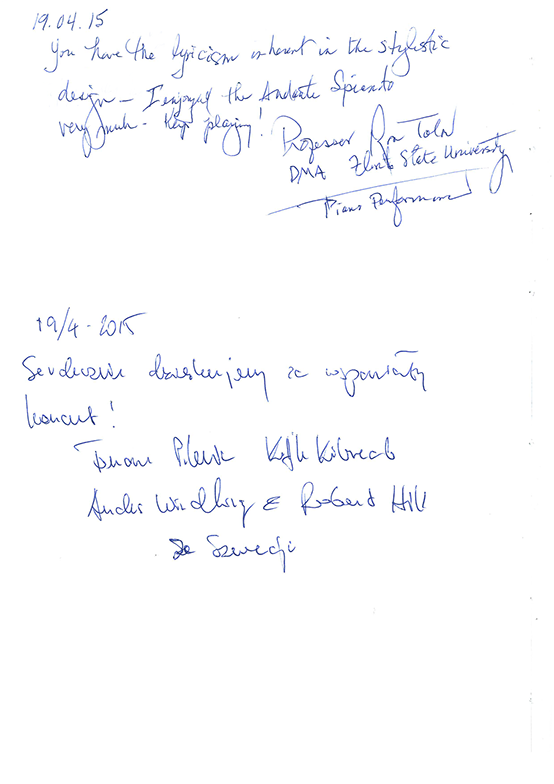 19.04.15
You have the lyricism inherent in the stylistic
design – I enjoyed the Andante Spianato
very much – Keep playing!
Professor Ron
DMA Florida State University
Piano Performance
19/4 - 2015
Serdecznie dziękujemy za wspaniały
koncert!
Robert Hill
ze Szwecji